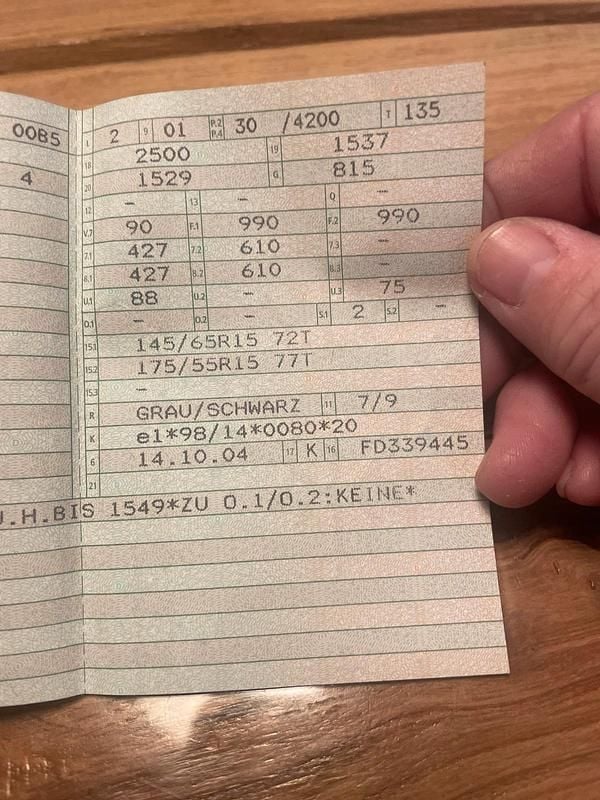 00B5 L 2 9 01 P.2 P.4 30 /4200 T 135
18 2500 19 1537
4 20 1529 G 815
12 – 13 – Q –
V.7 90 F.1 990 F.2 990
7.1 427 7.2 610 7.3 –
8.1 427 8.2 610 8.3 –
U.1 88 U.2 – U.3 75
O.1 – O.2 – S.1 2 S.2 –
15.1 145/65R15 72T
15.2 175/55R15 77T
15.3 –
R GRAU/SCHWARZ 11 7/9
K e1*98/14*0080*20
6 14.10.04 17 K 16 FD339445
21
.H.BIS 1549*ZU O.1/O.2:KEINE*